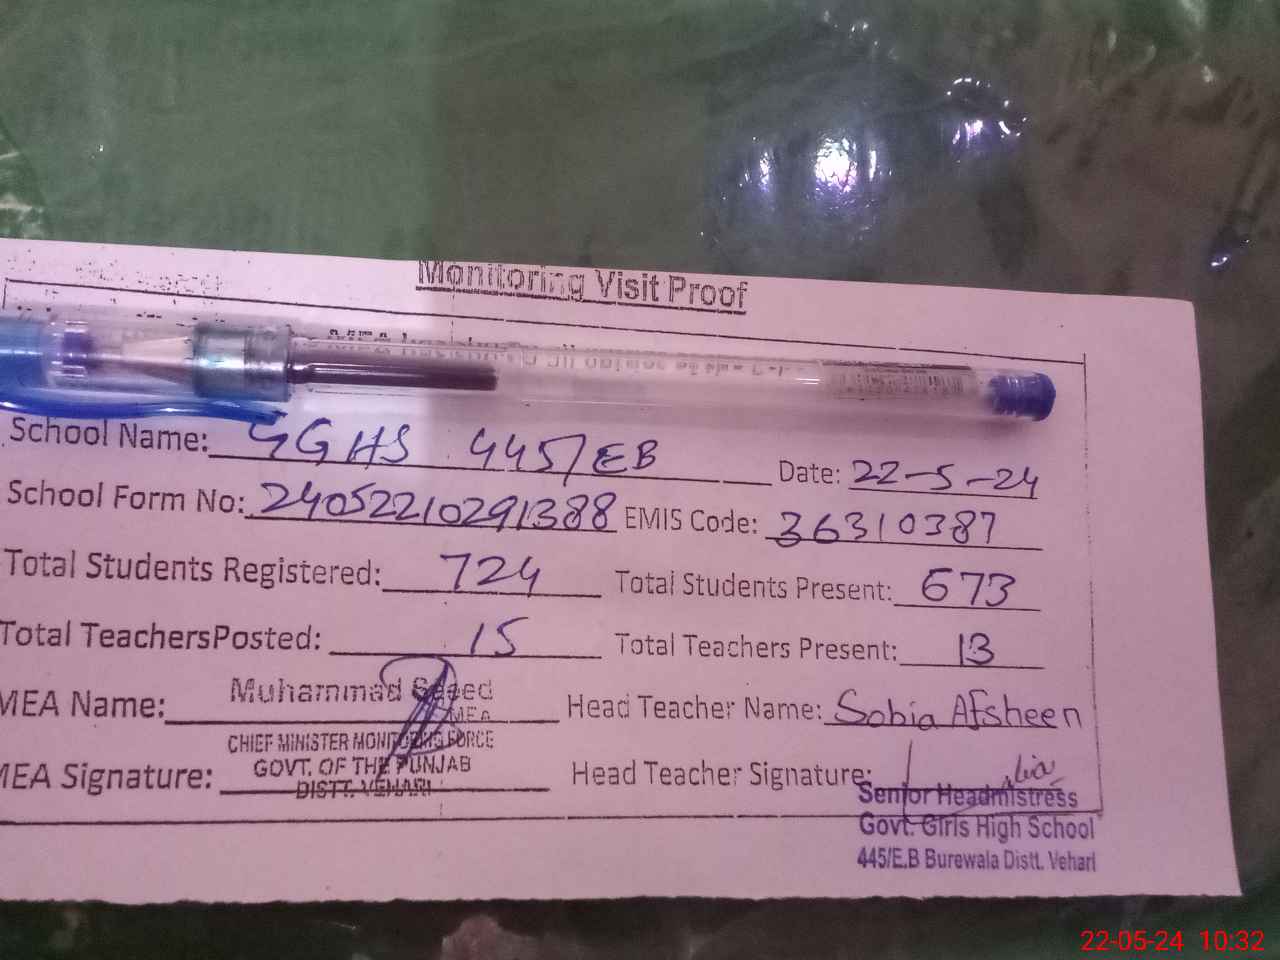 Monitoring Visit Proof
School Name: GGHS 445/EB Date: 22-5-24
School Form No: 24052210291388 EMIS Code: 36310387
Total Students Registered: 724 Total Students Present: 673
Total TeachersPosted: 15 Total Teachers Present: 13
MEA Name: Muhammad Saeed Head Teacher Name: Sobia Afsheen
MEA
CHIEF MINISTER MONITORING FORCE
MEA Signature: GOVT. OF THE PUNJAB Head Teacher Signature:
DISTT. VEHARI
Senior Headmistress
Govt. Girls High School
445/E.B Burewala Distt. Vehari
22-05-24 10:32